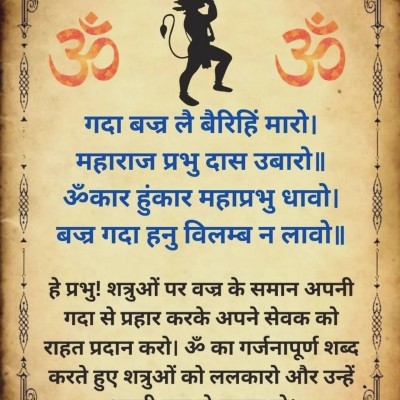 ॐ ॐ
गदा बज्र लै बैरिहिं मारो।
महाराज प्रभु दास उबारो॥
ॐकार हुंकार महाप्रभु धावो।
बज्र गदा हनु विलम्ब न लावो॥
हे प्रभु! शत्रुओं पर वज्र के समान अपनी
गदा से प्रहार करके अपने सेवक को
राहत प्रदान करो। ॐ का गर्जनापूर्ण शब्द
करते हुए शत्रुओं को ललकारो और उन्हें